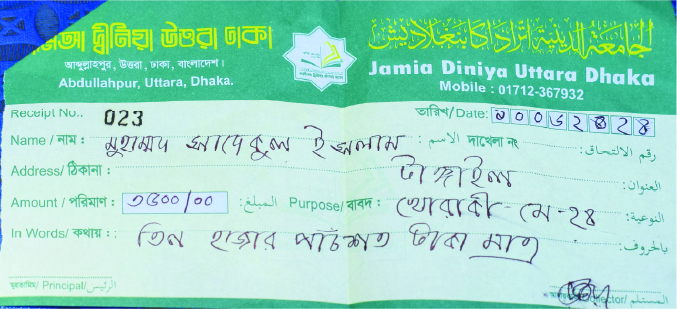 জামিআ দ্বীনিয়া উত্তরা ঢাকা
الجامعة الدينية اترا داكا بنغلاديش
আব্দুল্লাহপুর, উত্তরা, ঢাকা, বাংলাদেশ।
Jamia Diniya Uttara Dhaka
Abdullahpur, Uttara, Dhaka.
Mobile : 01712-367932
Receipt No.. 023 তারিখ/Date:
Name / নাম : মুহাম্মদ সাদেকুল ইসলাম الاسم : দাখেলা নং رقم الالتحاق:
Address/ ঠিকানা : টাঙ্গাইল العنوان:
Amount / পরিমাণ : ৩৫০০/০০ المبلغ: Purpose/ বাবদ : খোরাকী - মে-২৪ النوعية:
In Words/ কথায় : তিন হাজার পাঁচশত টাকা মাত্র بالحروف:
মুহতামিম/ Principal/الرئيس المستلم/